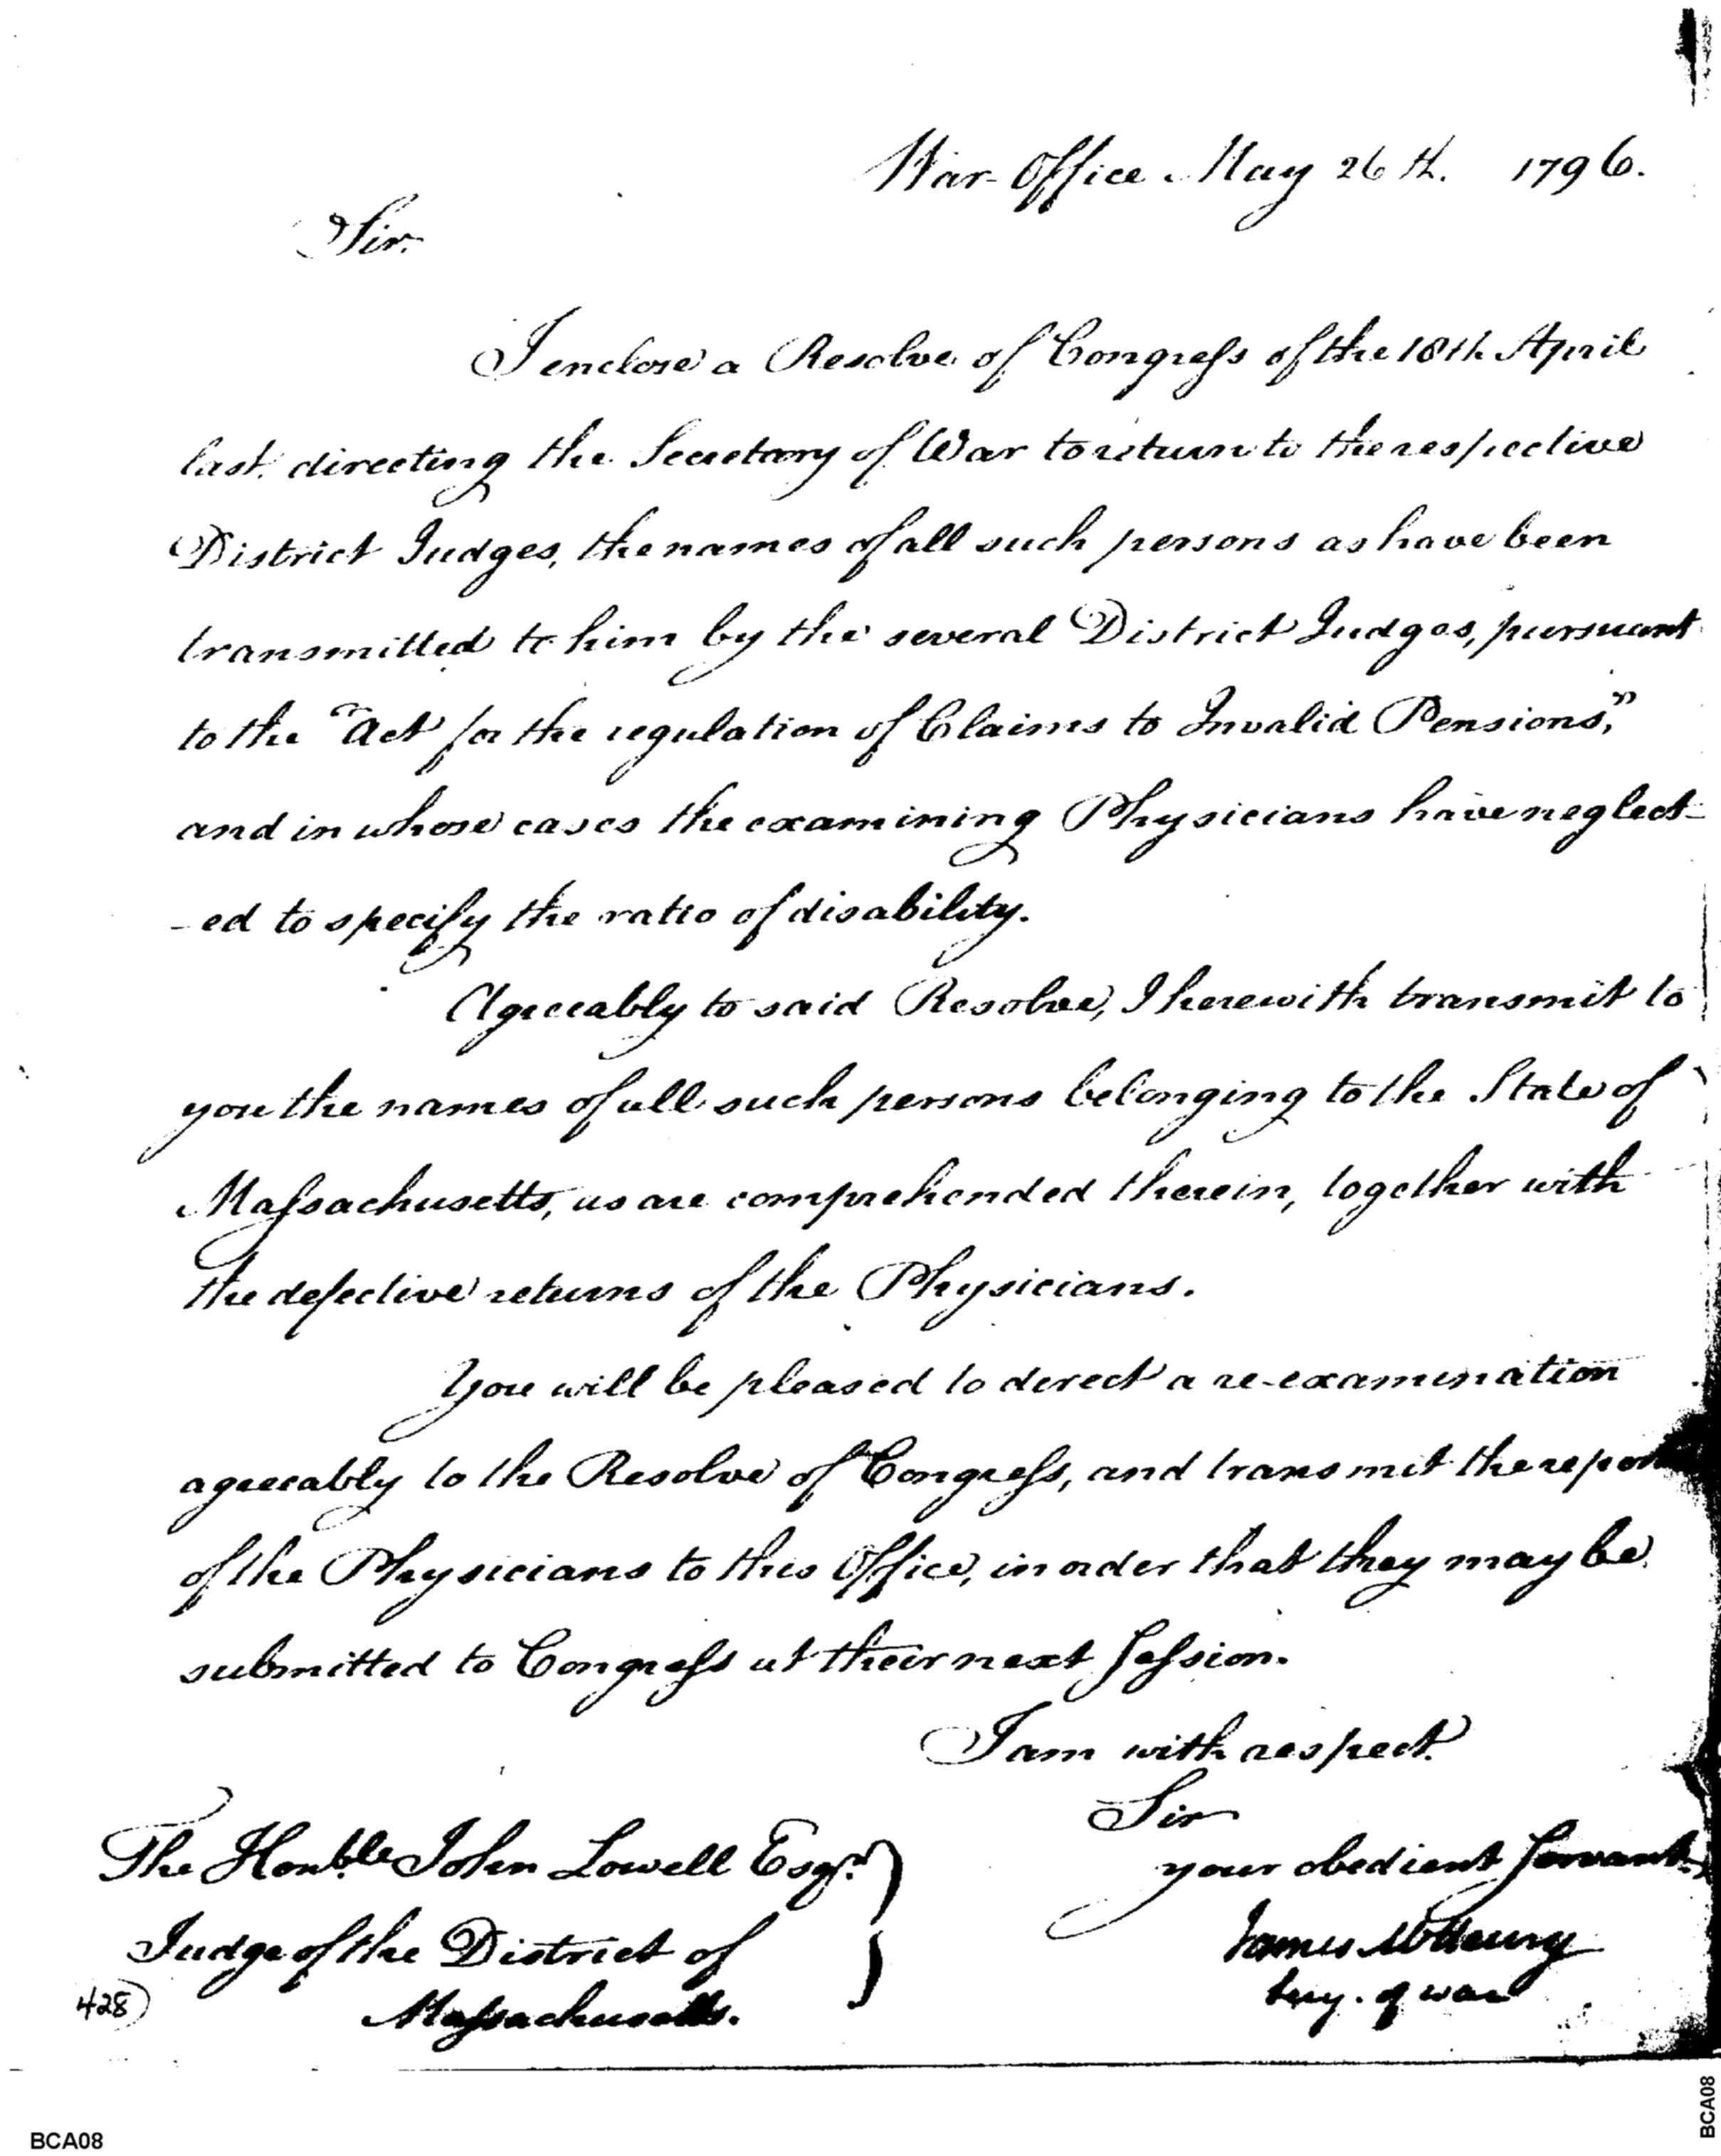 War Office May 26th. 1796.
Sir.
I enclose a Resolve of Congress of the 18th April
last. directing the Secretary of War to return to the respective
District Judges, the names of all such persons as have been
transmitted to him by the several District Judges, pursuant
to the "Act for the regulation of Claims to Invalid Pensions,"
and in whose cases the examining Physicians have neglect-
-ed to specify the ratio of disability.
Agreeably to said Resolve, I herewith transmit to
you the names of all such persons belonging to the State of
Massachusetts, as are comprehended therein, together with
the defective returns of the Physicians.
You will be pleased to direct a re-examination
agreeably to the Resolve of Congress, and transmit the report
of the Physicians to this Office, in order that they may be
submitted to Congress at their next Session.
I am with respect.
Sir
your obedient Servant.
James McHenry
Secy. of war
The Honble. John Lowell Esqr.
Judge of the District of
Massachusetts.
428)
BCA08
BCA08